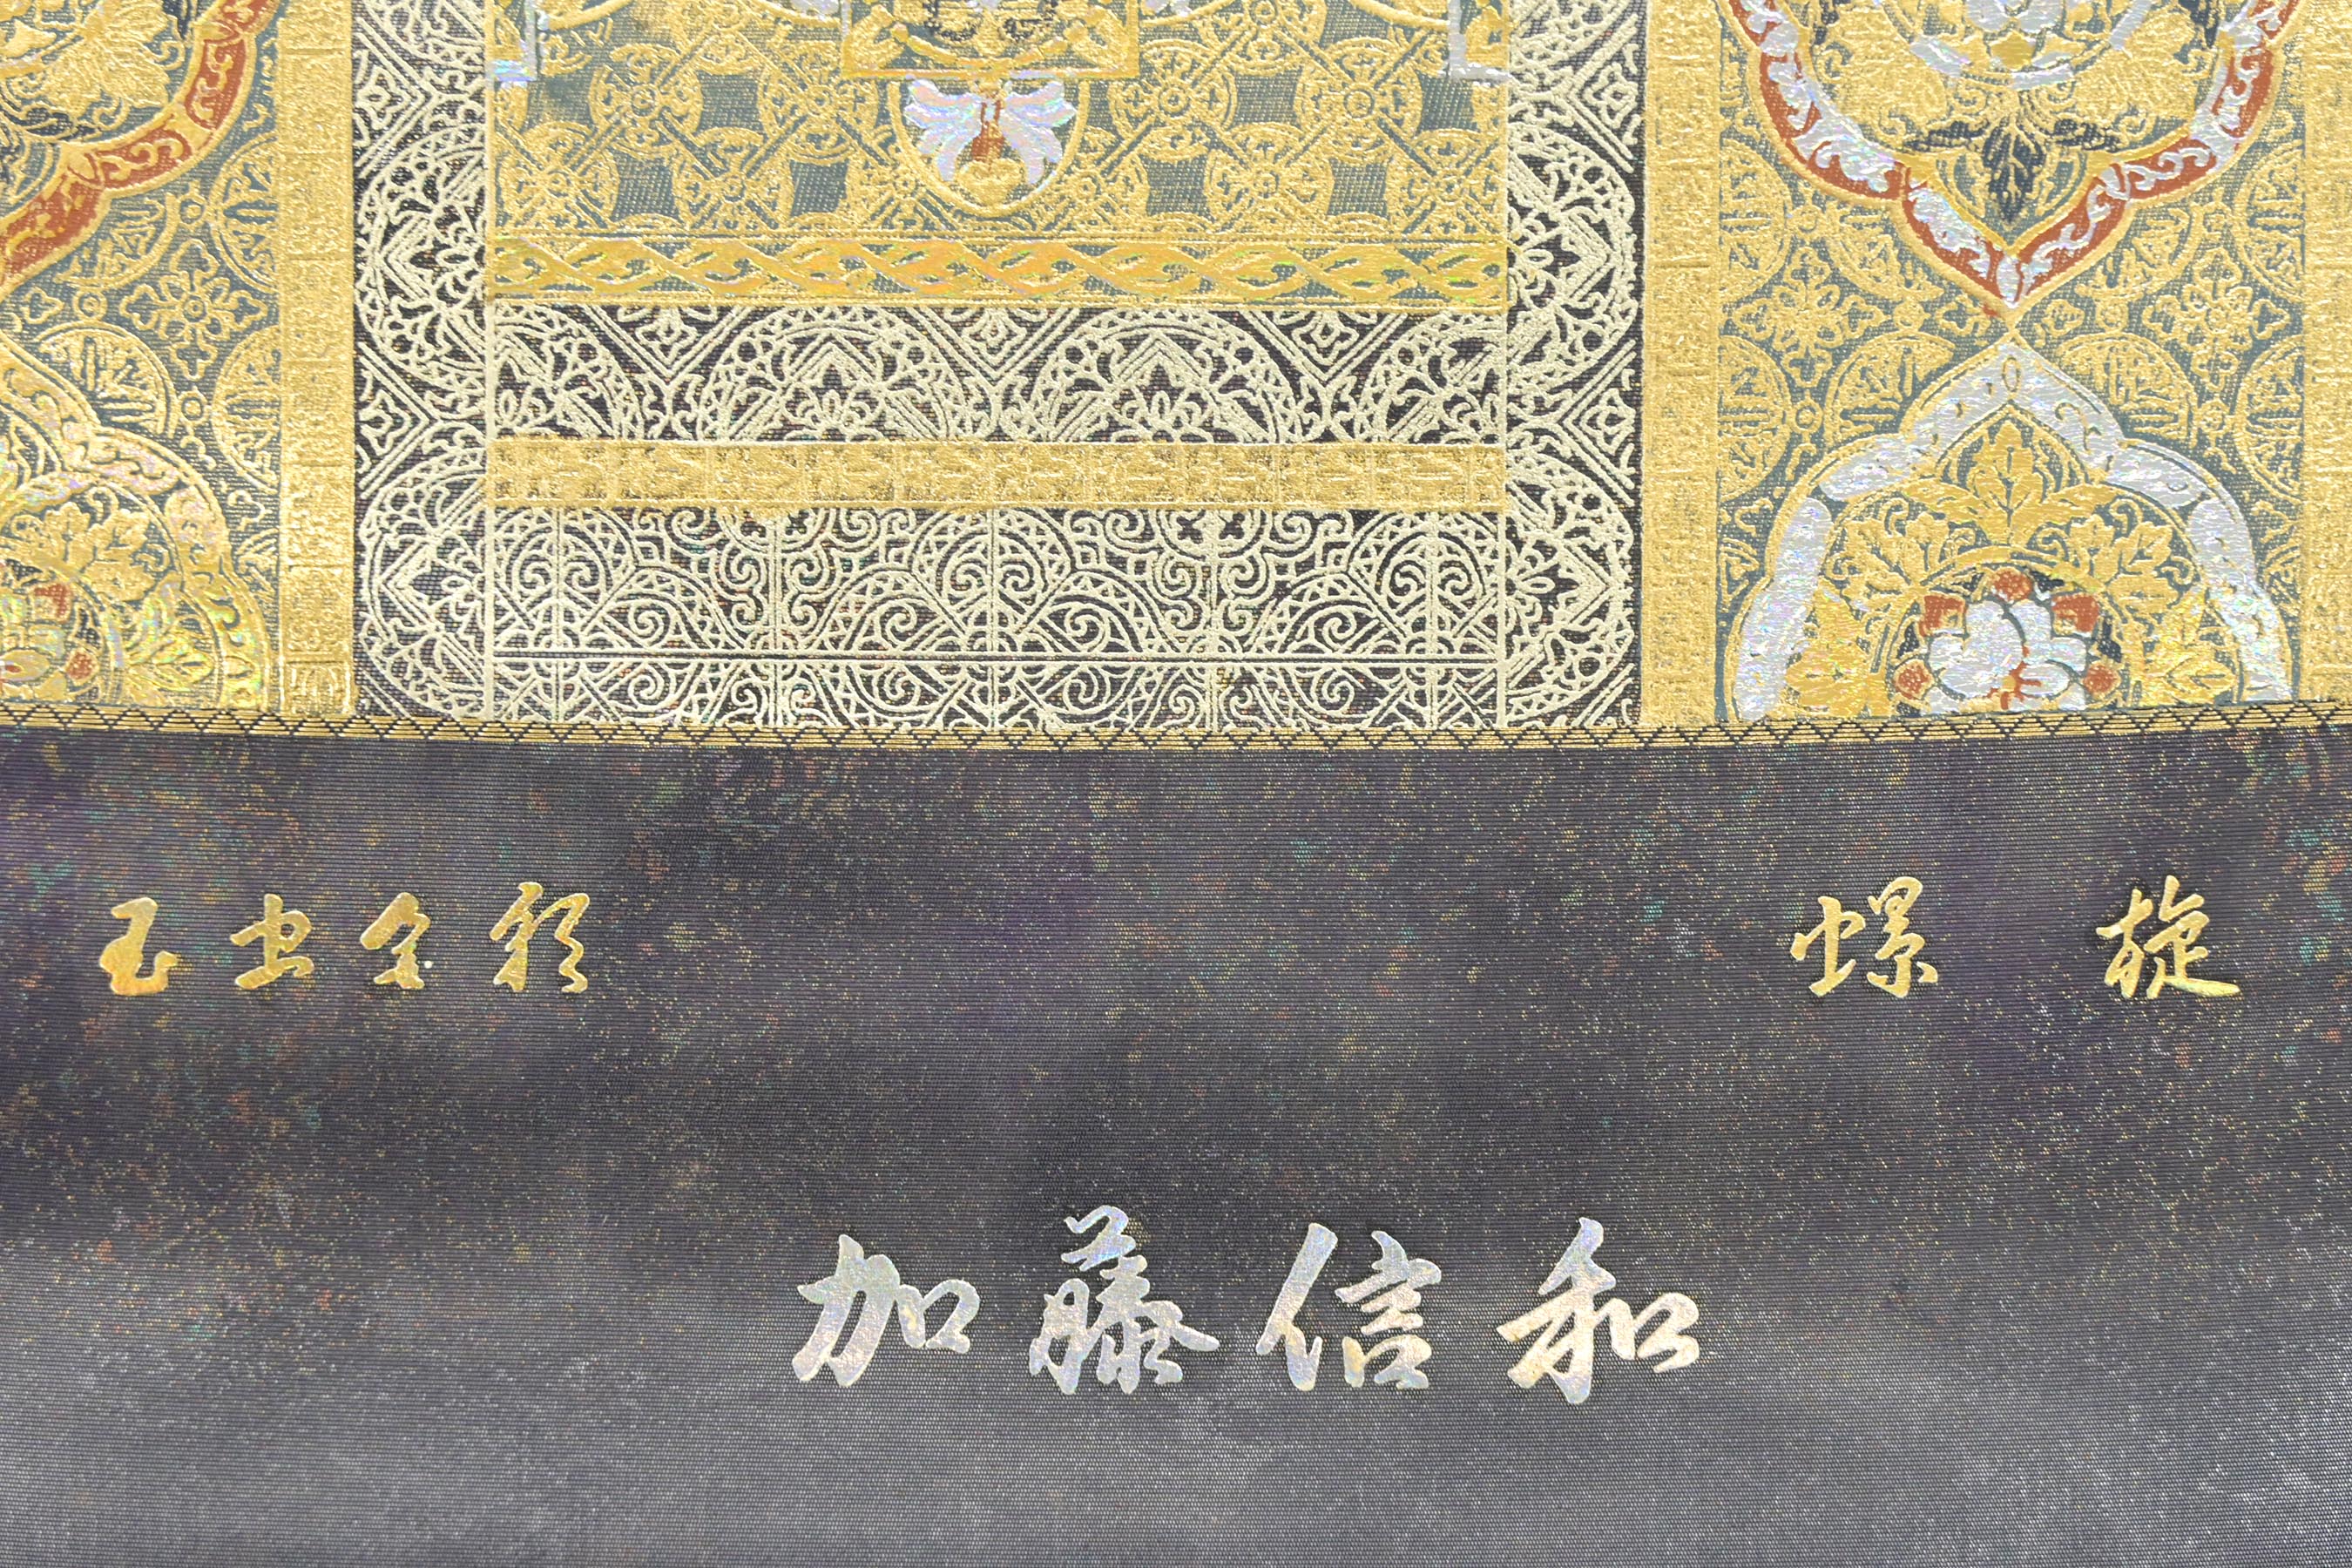 玉虫金彩 螺旋
加藤信和